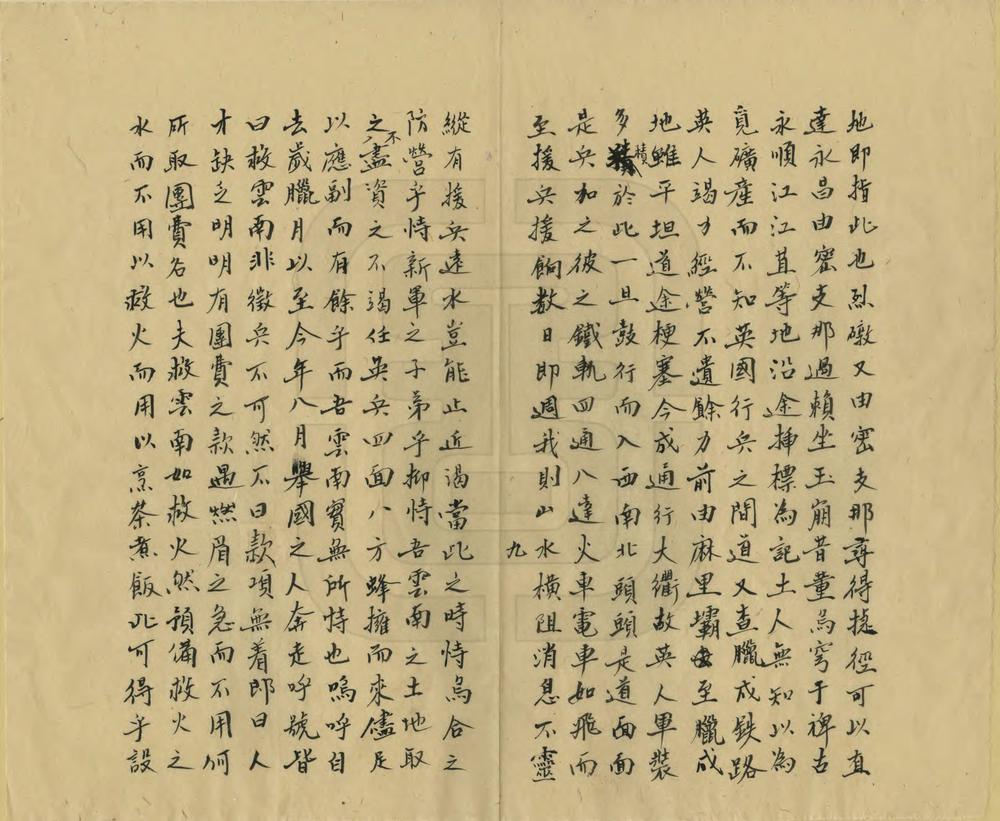 地即指此也烈礅又由密支那尋得捷徑可以直
達永昌由密支那過賴坐玉崩昔董烏穹于裨古
永順江江苴等地沿途揷標為記土人無知以為
覓礦產而不知英國行兵之間道又查臘戍鉄路
英人竭力經營不遺餘力前由麻里壩至臘戍
地雖平坦道途梗塞今成通行大衢故英人軍裝
多積於此一旦鼓行而入西南北頭頭是道面面
是兵加之彼之鐵軌四通八達火車電車如飛而
至援兵援餉数日即週我則山水橫阻消息不靈
九
縱有援兵遠水豈能止近渴當此之時恃烏合之
防營乎恃新軍之子弟乎抑恃吾雲南之土地取
之不盡資之不竭任英兵四面八方蜂擁而來儘足
以應副而有餘乎而吾雲南實無所恃也嗚呼自
去歲臘月以至今年八月舉國之人奔走呼號皆
曰救雲南非徵兵不可然不曰款項無着即曰人
才缺乏明明有團費之款遇燃眉之急而不用何
所取團費名也夫救雲南如救火然預備救火之
水而不用以救火而用以烹茶煮飯此可得乎設